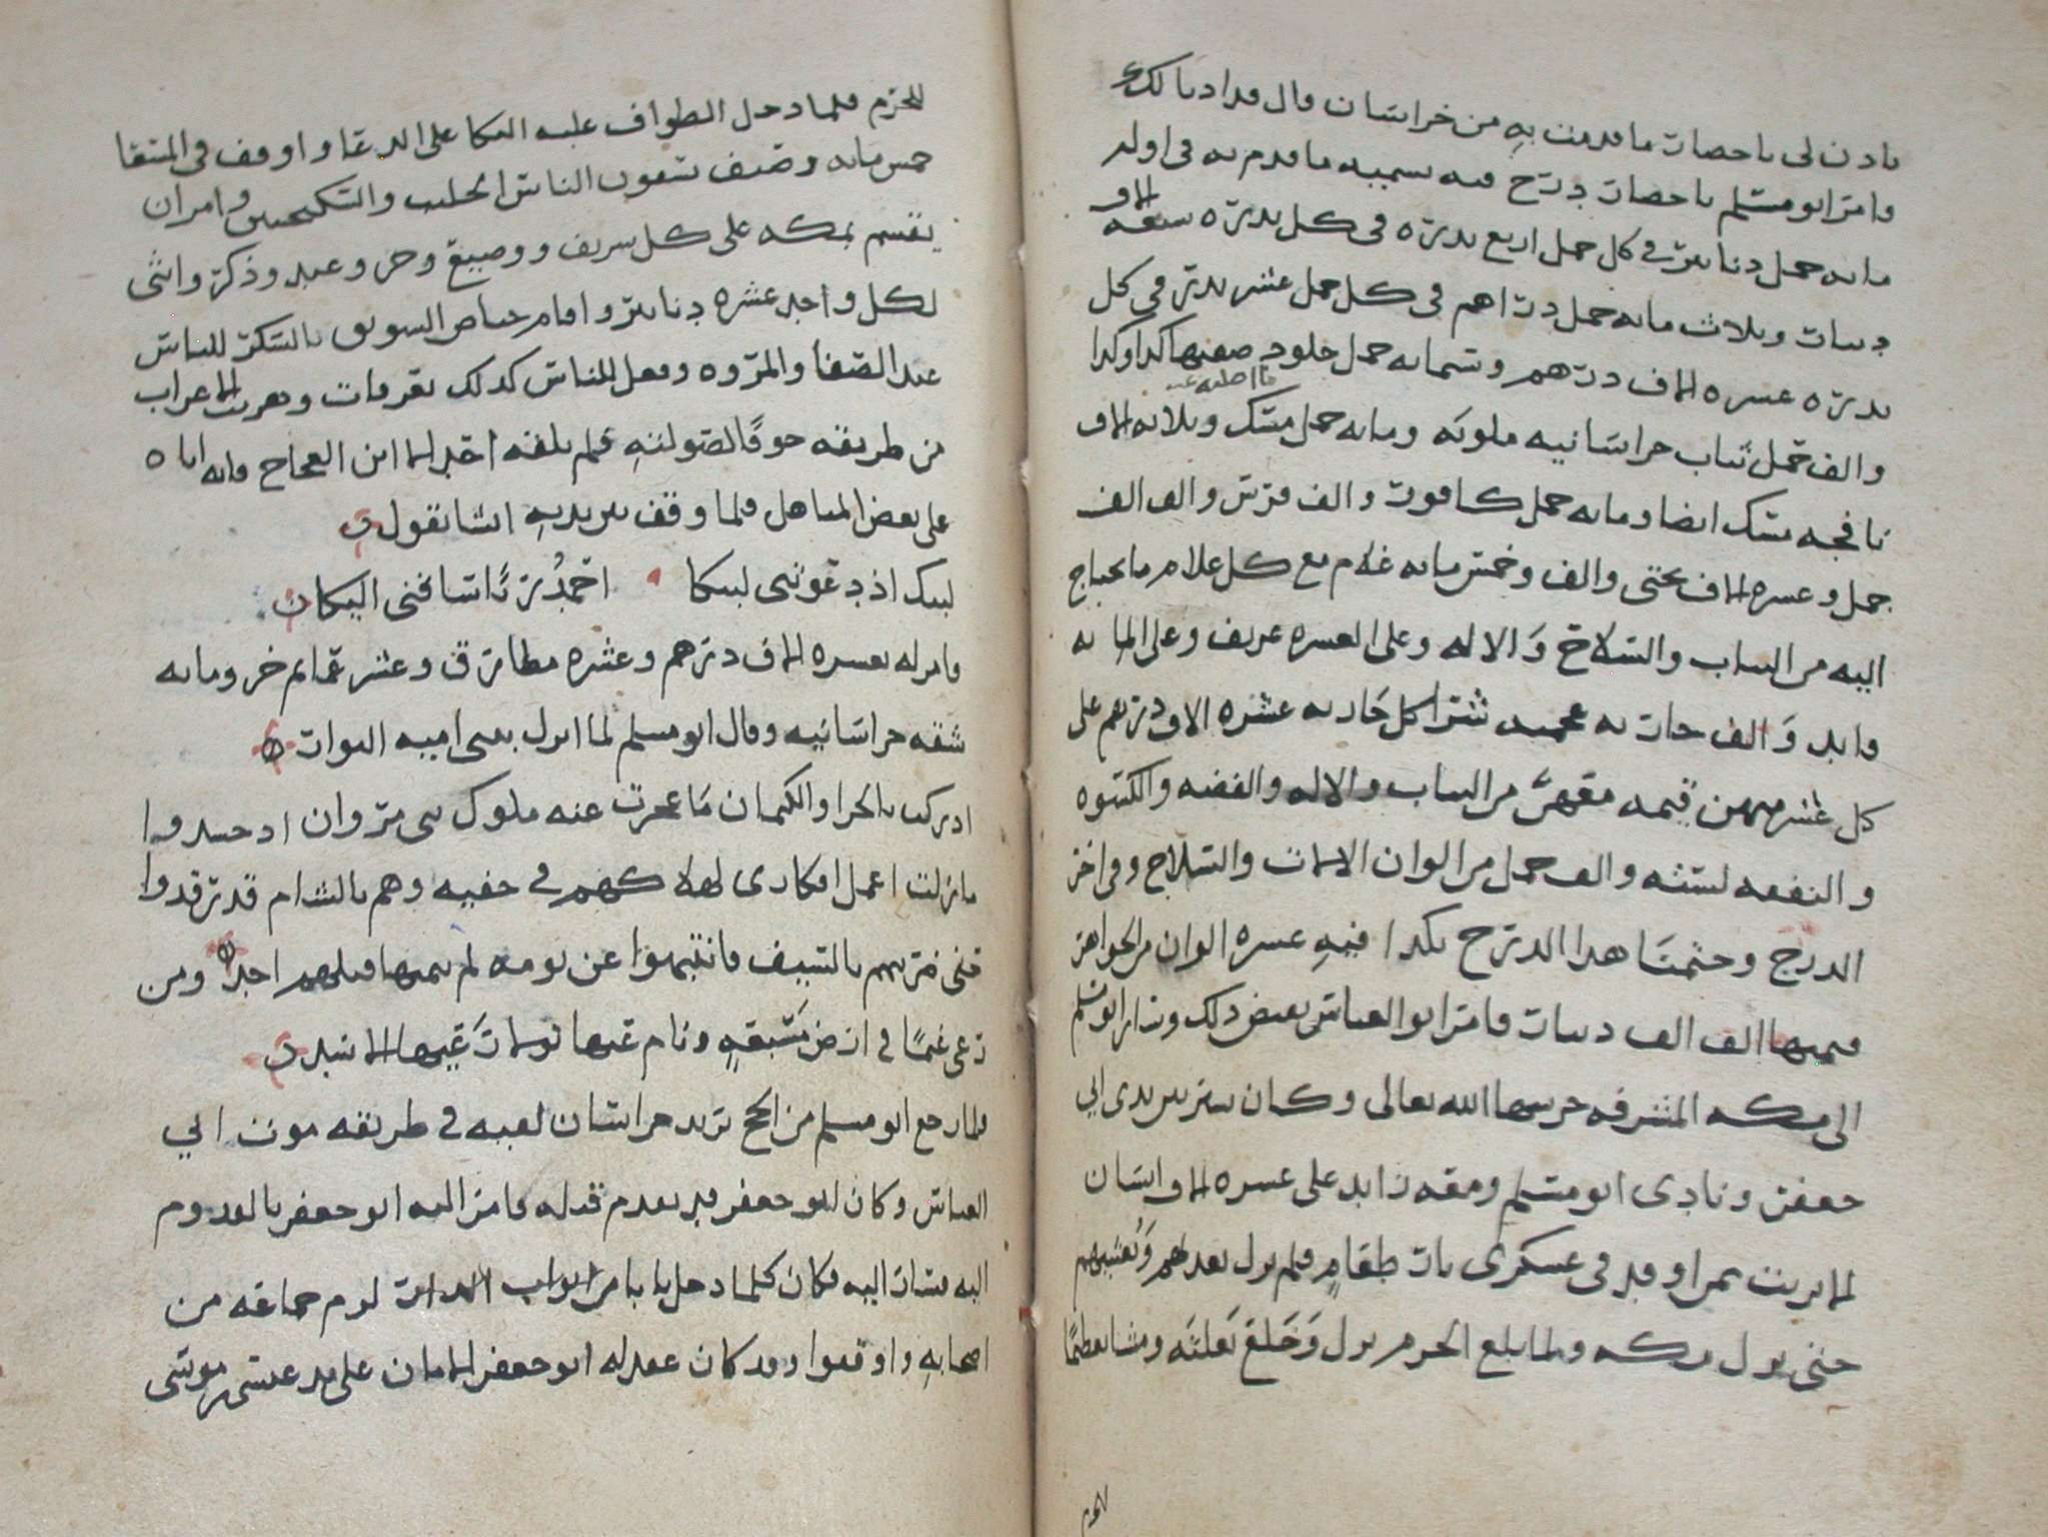 ىادن لى باحصار ما قدمت به من خراسان قال قد اذنا لك
وامر ابو مسلم باحصار درج فيه تسميه ما قدم به فى اوله
مايه حمل دنانير فى كل حمل اربع بدره فى كل بدره سبعه الاف
دينار وثلاث مايه حمل دراهم فى كل حمل عشر بدر فى كل
بدره عسره الاف درهم وثمانمايه حمل جلود صفتها كدا وكدا
والف حمل ثياب خراسانيه ملونه ومايه حمل مسك وثلاثه الاف
نافجه مسك ايضا ومايه حمل كافور والف فرس والف الف
جمل وعسره الاف بختى والف وخمس مايه غلام مع كل غلام ما يحتاج
اليه من الثياب والسلاح والاله وعلى العسره عريف وعلى المايه
قايد والف جاريه شرا كل جاريه عشره الاف درهم على
كل عشر منهن قيمه معهن من الثياب والاله والفضه والكسوه
والنفقه لسنه والف حمل من الوان الالات والسلاح وفى اخر
الدرج وختمنا هدا الدرج بكدا فيه عسره الوان من الجواهر
قيمتها الف الف دينار فامر ابو العباس بقبض دلك وسار ابو مسلم
الى مكه المشرفه حرسها الله تعالى وكان يسير بين يدى ابى
جعفر ونادى ابو مسلم ومعه زايد على عسره الاف انسان
لا بريت ممن اوقد فى عسكرى نار طعام فلم يزل يغديهم ويعشيهم
حتى نزل مكه ولما بلغ الحرم نزل وخلع نعليه ومشا تعظيما
للحرم فلما دخل الطواف غلبه البكا على الدعا واوقف فى المسعا
خمس مايه وصيف يسقون الناس الحليب والسكنجبين وامر ان
يقسم بمكه على كل شريف ووضيع وحر وعبد وذكر وانثى
لكل واحد عشره دنانير واقام حياض السويق بالسكر للناس
عند الصفا والمروه وفعل للناس كدلك بعرفات وهربت الاعراب
من طريقه خوفا لصولته فلم يلقه احد الا ابن العجاج فانه اتاه
على بعض المناهل فلما وقف بين يديه انشا يقول
لبيك اذ دعوتنى لبيكا احمد ربا ساقنى اليكا
فامر له بعسره الاف درهم وعشره مطارق وعشر عمايم خز ومايه
شقه خراسانيه وقال ابو مسلم لما ازال بنى اميه
ادركت بالحزم والكتمان ما عجزت عنه ملوك بنى مروان اد حسدوا
مازلت اعمل افكارى لهلاكهم فى خفيه وهم بالشام قد رقدوا
حتى ضربتهم بالسيف فانتبهوا عن نومه لم ينمها قبلهم احد ومن
رعى غنما فى ارض مسبعه ونام عنها تولا رعيها الاسد
فلما رجع ابو مسلم من الحج يريد خراسان لقيه فى طريقه موت ابى
العباس وكان ابو جعفر قد تقدم قبله فامر اليه ابو جعفر بالقدوم
اليه فسار اليه فكان كلما دخل بابا من ابواب الدار لزم جماعه من
اصحابه واوقفوا وقد كان عقد له ابو جعفر الامان على يد عيسى بن موسى